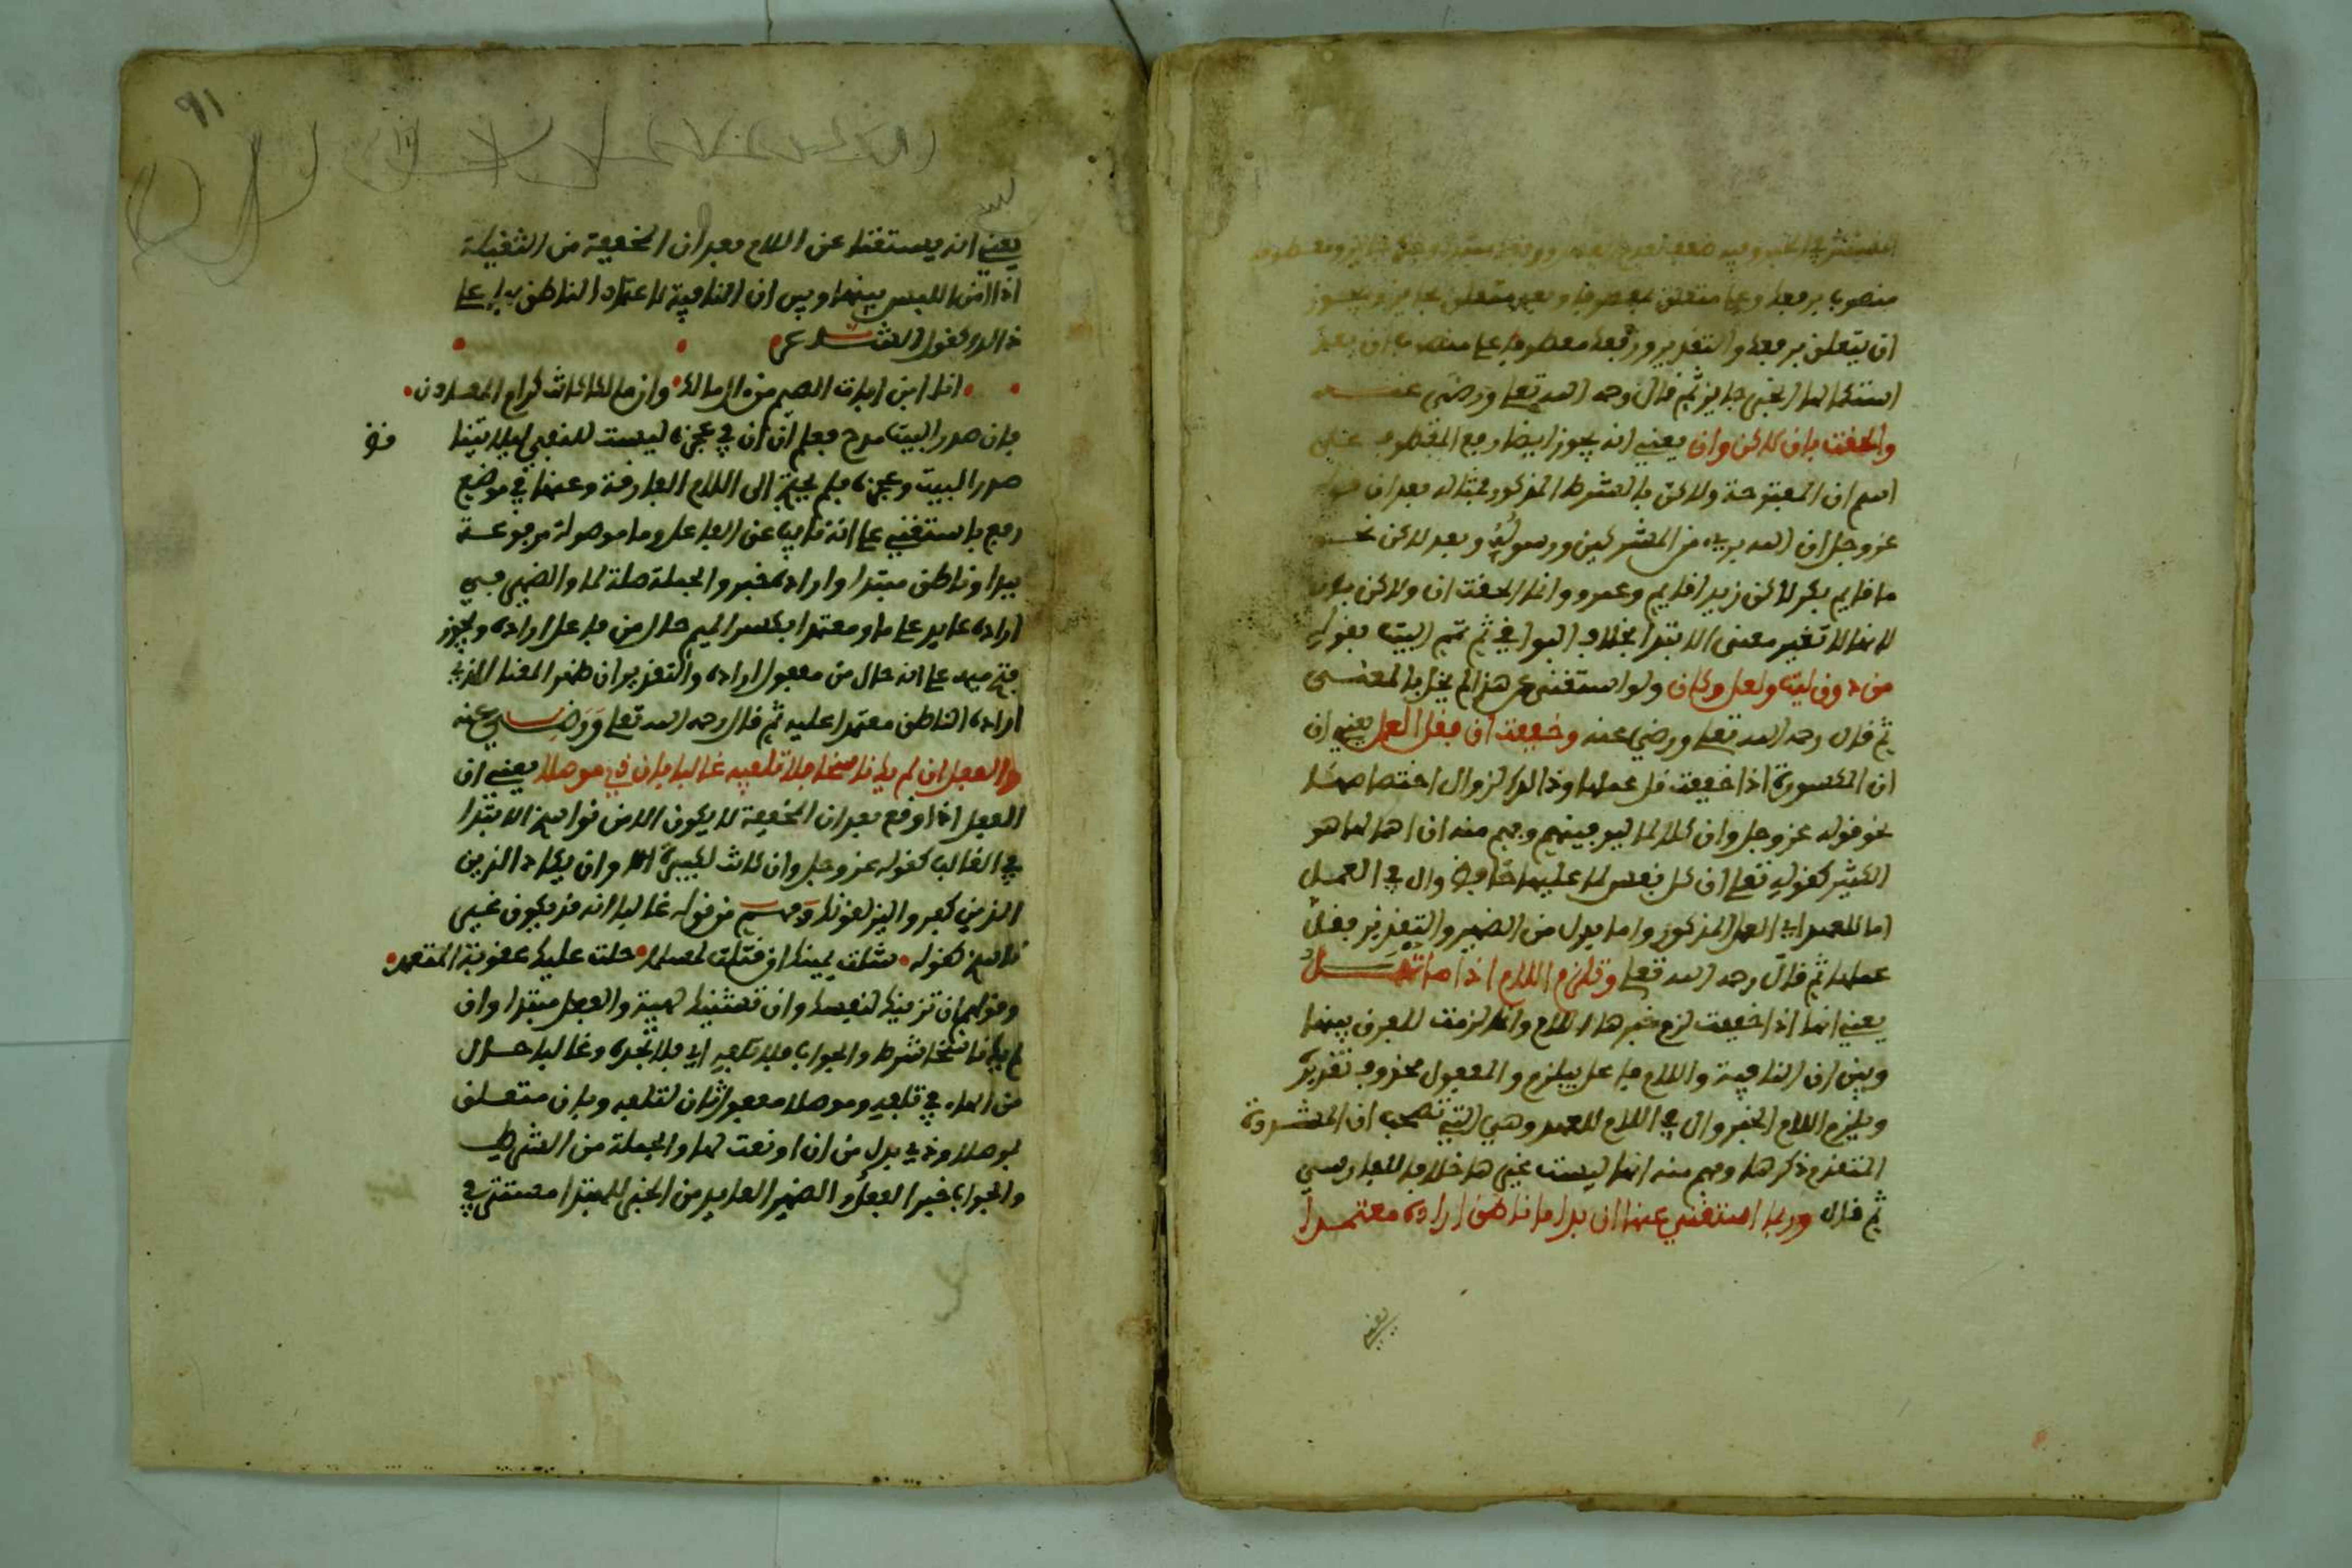 المستتر في الخبر وفيه ضعف
منصوب برفعك وعلى متعلق بمعطوفا وبعد متعلق بجايز ويجوز
ان يتعلق برفعك والتقدير ورفعك معطوفا على منصوب ان بعد
استكمالها الخبر جايز ثم قال رحمه الله تعلى ورضي عنه
والحقت بان لاكن وان يعني انه يجوز ايضا رفع المعطوف على
اسم ان المفتوحة ولاكن بالشرط المذكور فمثاله بعد ان قوله
عز وجل ان الله بريء من المشركين ورسوله وبعد لاكن نحو
ما قايم بكر لاكن زيدا قايم وعمرو وانما الحقت ان ولاكن بان
لانها لا تغير معنى الابتدا بخلاف البواقي ثم تمم البيت بقوله
من دون ليت ولعل وكان ولو استغنى عن هذا لم يخل بالمعنى
ثم قال رحمه الله تعلى ورضي عنه وخففت ان فقل العمل يعني ان
ان المكسورة اذا خففت قل عملها وذالك لزوال اختصاصها
نحو قوله عز وجل وان كلا لما ليوفينهم وفهم منه ان اهمالها هو
الكثير كقوله تعلى ان كل نفس لما عليها حافظ وال في العمل
اما للعهد اي العمل المذكور واما بدل من الضمير والتقدير فقل
عملها ثم قال رحمه الله تعلى وتلزم اللام اذا ما تهمل
يعني انها اذا خففت لزم خبرها اللام وانما لزمت للفرق بينها
وبين ان النافية واللام فاعل بيلزم والمفعول محذوف تقديره
ويلزم اللام الخبر وال في اللام للعهد وهي التي تصحب ان المشددة
المتقدم ذكرها وفهم منه انها ليست غيرها خلافا للفارسي
ثم قال وربما استغني عنها ان بدا ما ناطق اراده معتمدا
يعني
٩١
يعني انه يستغنا عن اللام بعد ان المخففة من الثقيلة
اذا امن اللبس بينها وبين ان النافية لاعتماد الناطق بها على
ذالك كقول الشاعر
انا ابن اباة الضيم من ال مالك وان مالك كانت كرام المعادن
فان صدر البيت مدح فعلم ان ان في عجزه ليست للنفي ليلا يتنا
قض
صدر البيت وعجزه فلم يحتج الى اللام الفارقة وعنها في موضع
رفع باستغني على انه نايب عن الفاعل وما موصولة مرفوعة
ببدا وناطق مبتدا واراده خبر والجملة صلة لما والضمير في
اراده عايد على ما ومعتمدا بكسر الميم حال من فاعل اراده ويجوز
فتح ميمه على انه حال من مفعول اراده والتقدير ان ظهر المعنا الذي
اراده الناطق معتمدا عليه ثم قال رحمه الله تعلى ورضي عنه
والفعل ان لم يك ناسخا فلا تلفيه غالبا بان ذي موصلا يعني ان
الفعل اذا وقع بعد ان المخففة لا يكون الا من نواسخ الابتدا
في الغالب كقوله عز وجل وان كانت لكبيرة الا وان يكاد الذين
الذين كفروا ليزلقونك وفهم من قوله غالبا انه قد يكون غير
ناسخ كقوله شلت يمينك ان قتلت لمسلما حلت عليك عقوبة المتعمد
وقولهم ان تزينك لنفسك وان تشينك لهية والفعل مبتدا وان
لم يك ناسخا شرط والجواب فلا تلفيه اي فلا تجده وغالبا حال
من الهاء في تلفيه وموصلا مفعول ثان لتلفيه وبان متعلق
بموصلا وذي بدل من ان او نعت لها والجملة من الشرط
والجواب خبر الفعل والضمير العايد من الخبر للمبتدا مستتر في